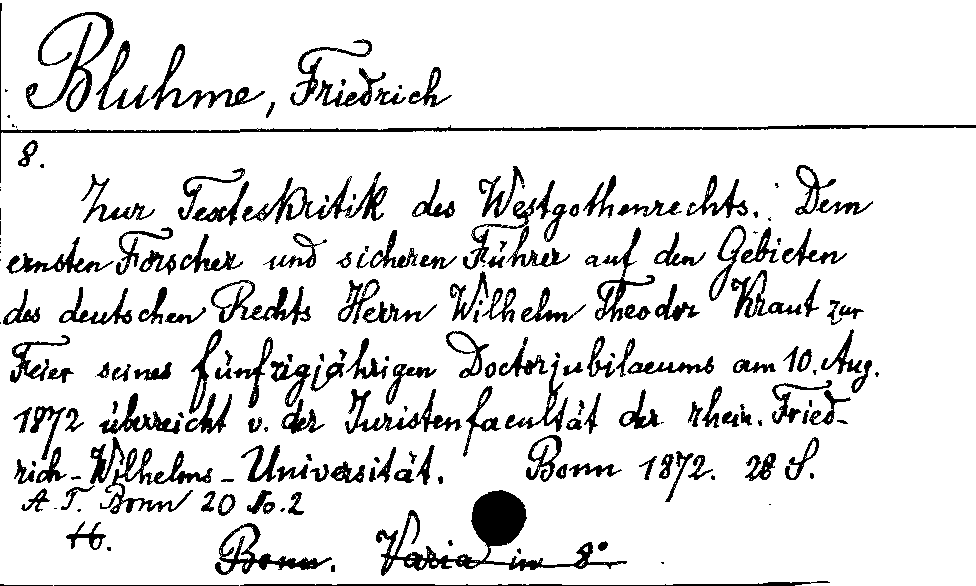 Bluhme, Friedrich
8.
Zur Texteskritik des Westgothenrechts. Dem
ernsten Forscher und sicheren Führer auf den Gebieten
des deutschen Rechts Herrn Wilhelm Theodor Kraut zur
Feier seines fünfzigjährigen Doctorjubilaeums am 10. Aug.
1872 überreicht v. der Juristenfacultät der rhein. Fried-
rich-Wilhelms-Universität. Bonn 1872. 28 S.
A. T. Bonn 20 No. 2
Bonn. Varia in 8°